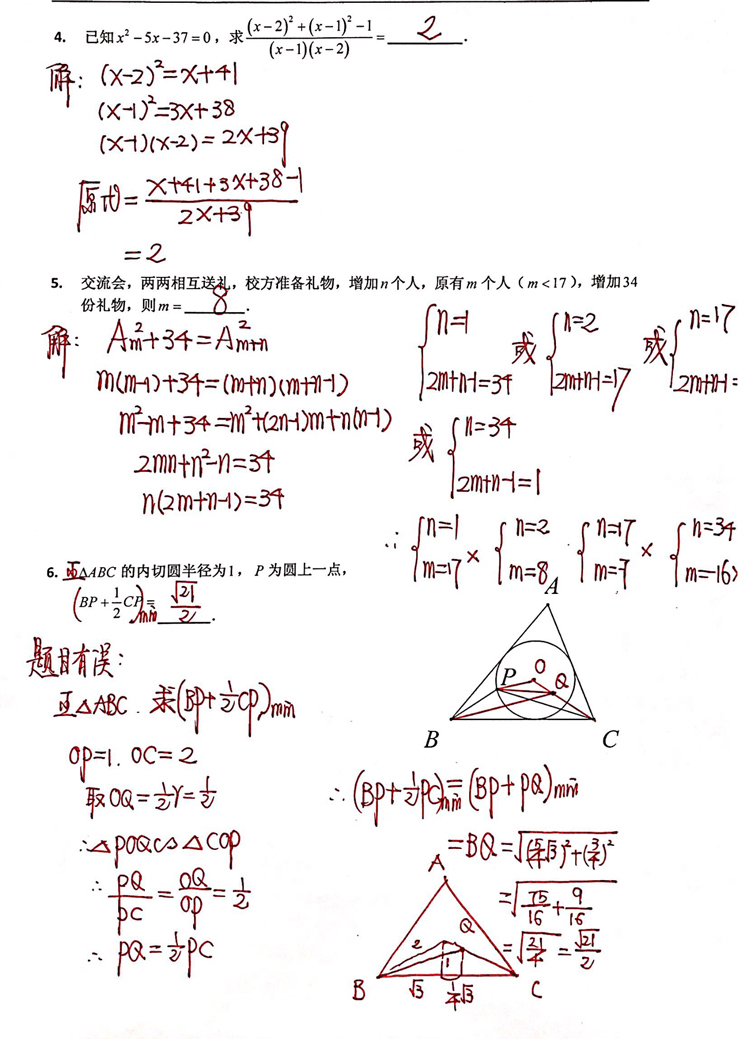 4. 已知 x²－5x－37=0，求 ((x－2)²+(x－1)²－1)/((x－1)(x－2)) = 2 .
解: (x-2)²=x+41
(x-1)²=3x+38
(x-1)(x-2)=2x+39
原式= (x+41+3x+38-1)/(2x+39)
=2
5. 交流会，两两相互送礼，校方准备礼物，增加n个人，原有m个人（m<17），增加34
份礼物，则m= 8 .
解: A²m+34=A²m+n
m(m-1)+34=(m+n)(m+n-1)
m²-m+34=m²+(2n-1)m+n(n-1)
2mn+n²-n=34
n(2m+n-1)=34
{n=1 2m+n-1=34 或 {n=2 2m+n-1=17 或 {n=17 2m+n-1=
或 {n=34 2m+n-1=1
∴ {n=1 m=17 × {n=2 m=8 {n=17 m=-7 × {n=34 m=-16 ×
6. 正△ABC 的内切圆半径为1，P 为圆上一点，
(BP+1/2CP)min= √21/2 .
题目有误:
正△ABC. 求(BP+1/2CP)min
OP=1. OC=2
取OQ=1/2r=1/2
∴△POQ∽△COP
∴ PQ/PC=OQ/OP=1/2
∴ PQ=1/2PC
A
P
O
Q
B
C
∴(BP+1/2PC)min=(BP+PQ)min
=BQ=√((5/4√3)²+(3/4)²)
=√(75/16+9/16)
=√(21/4)=√21/2
A
Q
2
1
B
√3
1/4√3
C